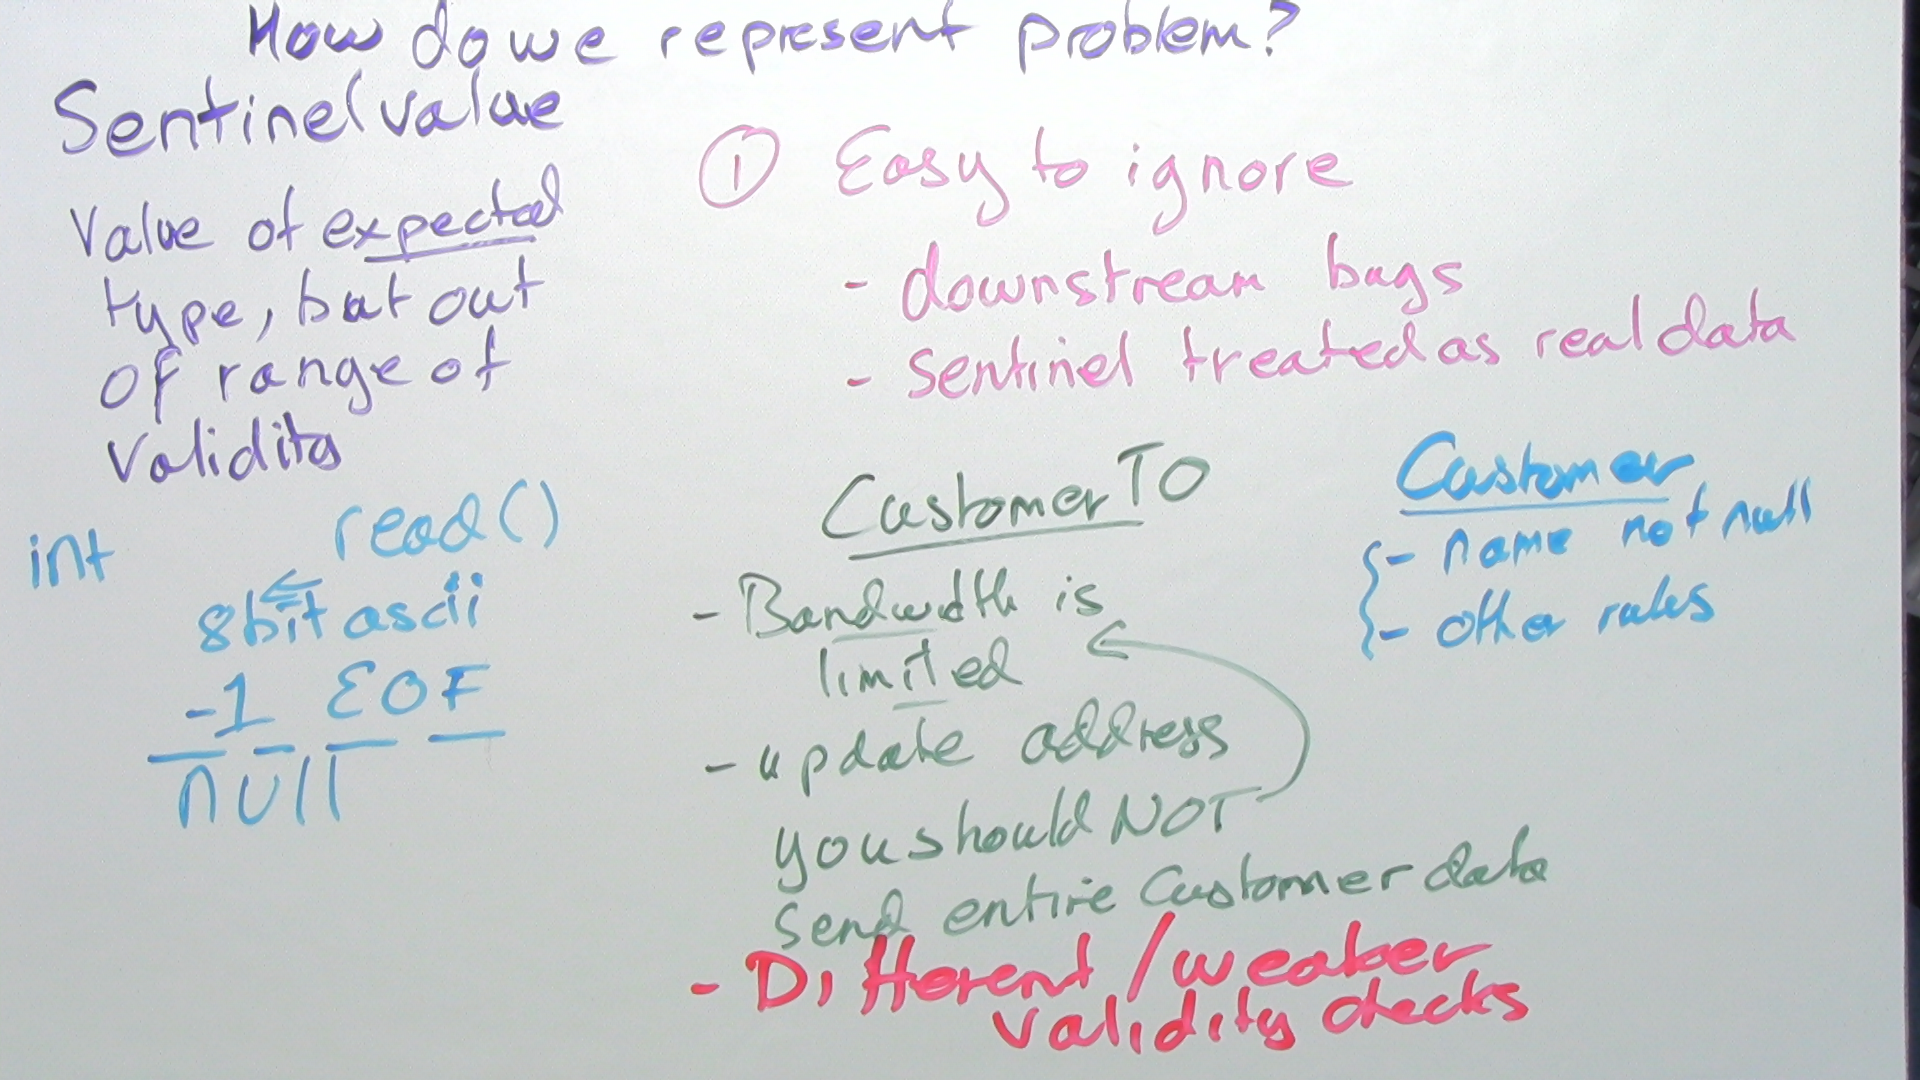 How do we represent problem?
Sentinel value
Value of expected
type, but out
of range of
validity
int read()
8bit ascii
-1 EOF
null
① Easy to ignore
- downstream bugs
- sentinel treated as real data
CustomerTO
- Bandwidth is
limited
- update address
you should NOT
send entire Customer data
- Different / weaker
validity checks
Customer
- name not null
- other rules